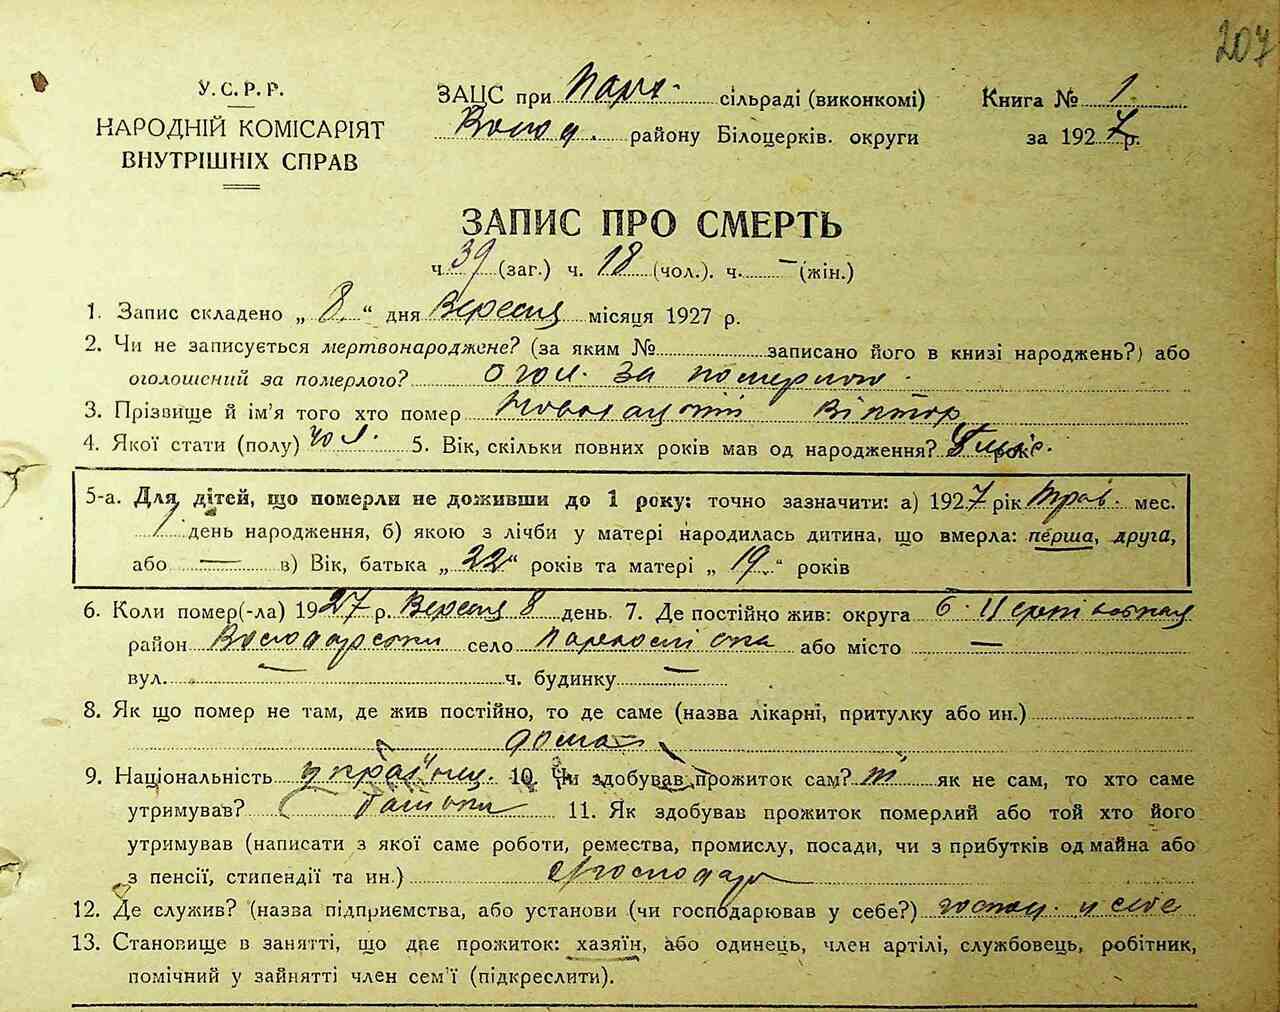 207
У.С.Р.Р.
НАРОДНІЙ КОМІСАРІЯТ
ВНУТРІШНІХ СПРАВ
ЗАЦС при Парх. сільраді (виконкомі)
Волод. району Білоцерків. округи
Книга № 1
за 1927 р.
ЗАПИС ПРО СМЕРТЬ
ч. 39 (заг.) ч. 18 (чол.). ч. — (жін.)
1. Запис складено „ 8 “ дня Вересня місяця 1927 р.
2. Чи не записується мертвонароджене? (за яким № записано його в книзі народжень?) або
оголошений за померлого? огол. за померлого
3. Прізвище й ім'я того хто помер Віктор
4. Якої стати (полу) чол. 5. Вік, скільки повних років мав од народження?
5-а. Для дітей, що померли не доживши до 1 року: точно зазначити: а) 1927 рік Трав. мес.
день народження, б) якою з лічби у матері народилась дитина, що вмерла: перша, друга,
або — в) Вік, батька „ 22 “ років та матері „ 19 “ років
6. Коли помер(-ла) 1927 р. Вересня 8 день. 7. Де постійно жив: округа Б.
район Володарський село Пархомівка або місто —
вул. — ч. будинку —
8. Як що помер не там, де жив постійно, то де саме (назва лікарні, притулку або ин.)
дома
9. Національність українец. 10. Чи здобував прожиток сам? ні як не сам, то хто саме
утримував? батьки 11. Як здобував прожиток померлий або той хто його
утримував (написати з якої саме роботи, ремества, промислу, посади, чи з прибутків од майна або
з пенсії, стипендії та ин.)
12. Де служив? (назва підприємства, або установи (чи господарював у себе?) госпо. у себе
13. Становище в занятті, що дає прожиток: хазяїн, або одинець, член артілі, службовець, робітник,
помічний у зайнятті член сем'ї (підкреслити).